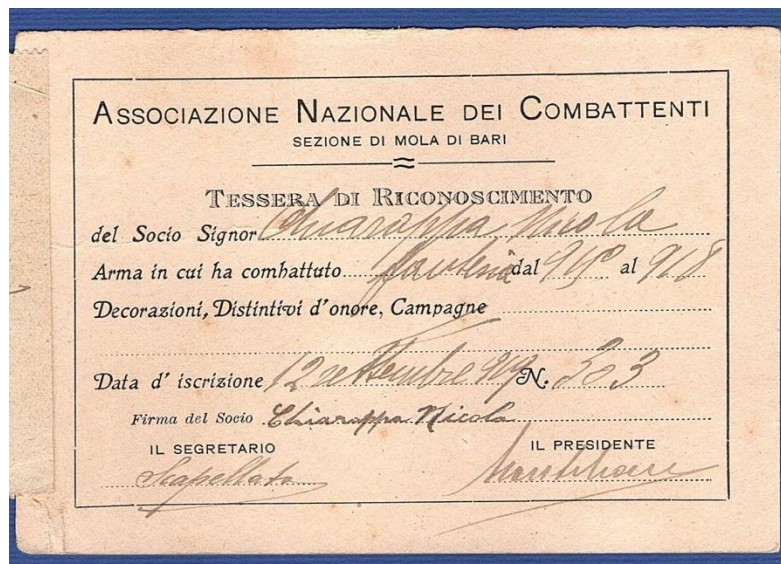 ASSOCIAZIONE NAZIONALE DEI COMBATTENTI
SEZIONE DI MOLA DI BARI
TESSERA DI RICONOSCIMENTO
del Socio Signor Chiarappa Nicola
Arma in cui ha combattuto fanteria dal 915 al 918
Decorazioni, Distintivi d'onore, Campagne
Data d'iscrizione 12 settembre 919 N. 303
Firma del Socio Chiarappa Nicola
IL SEGRETARIO IL PRESIDENTE